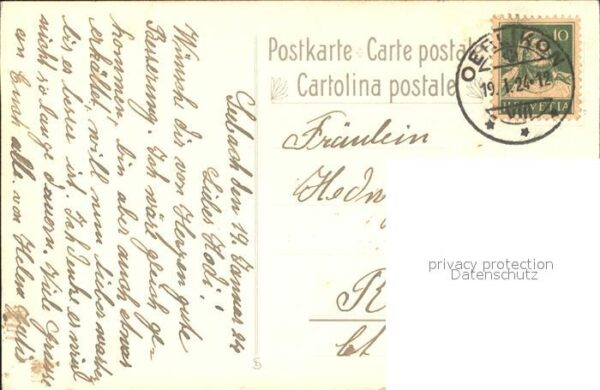 Postkarte Carte postale
Cartolina postale
10
HELVETIA
OERLIKON
19.1.24-12
VIII
Fräulein
Hedwig
R
Ct
privacy protection
Datenschutz
Seebach den 19. Januar 24
Liebes Hedi!
Wünsch dir von Herzen gute
Besserung. Ich wäre gleich ge-
kommen, bin aber auch etwas
erkältet, will nun lieber warten
bis es besser ist. Ich denke es wird
nicht so lange dauern. Viele Grüsse
an Euch alle. von Helene